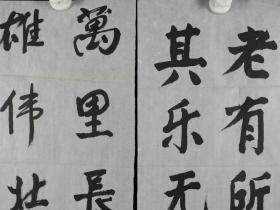 老有所
其乐无
萬里長
雄伟壮